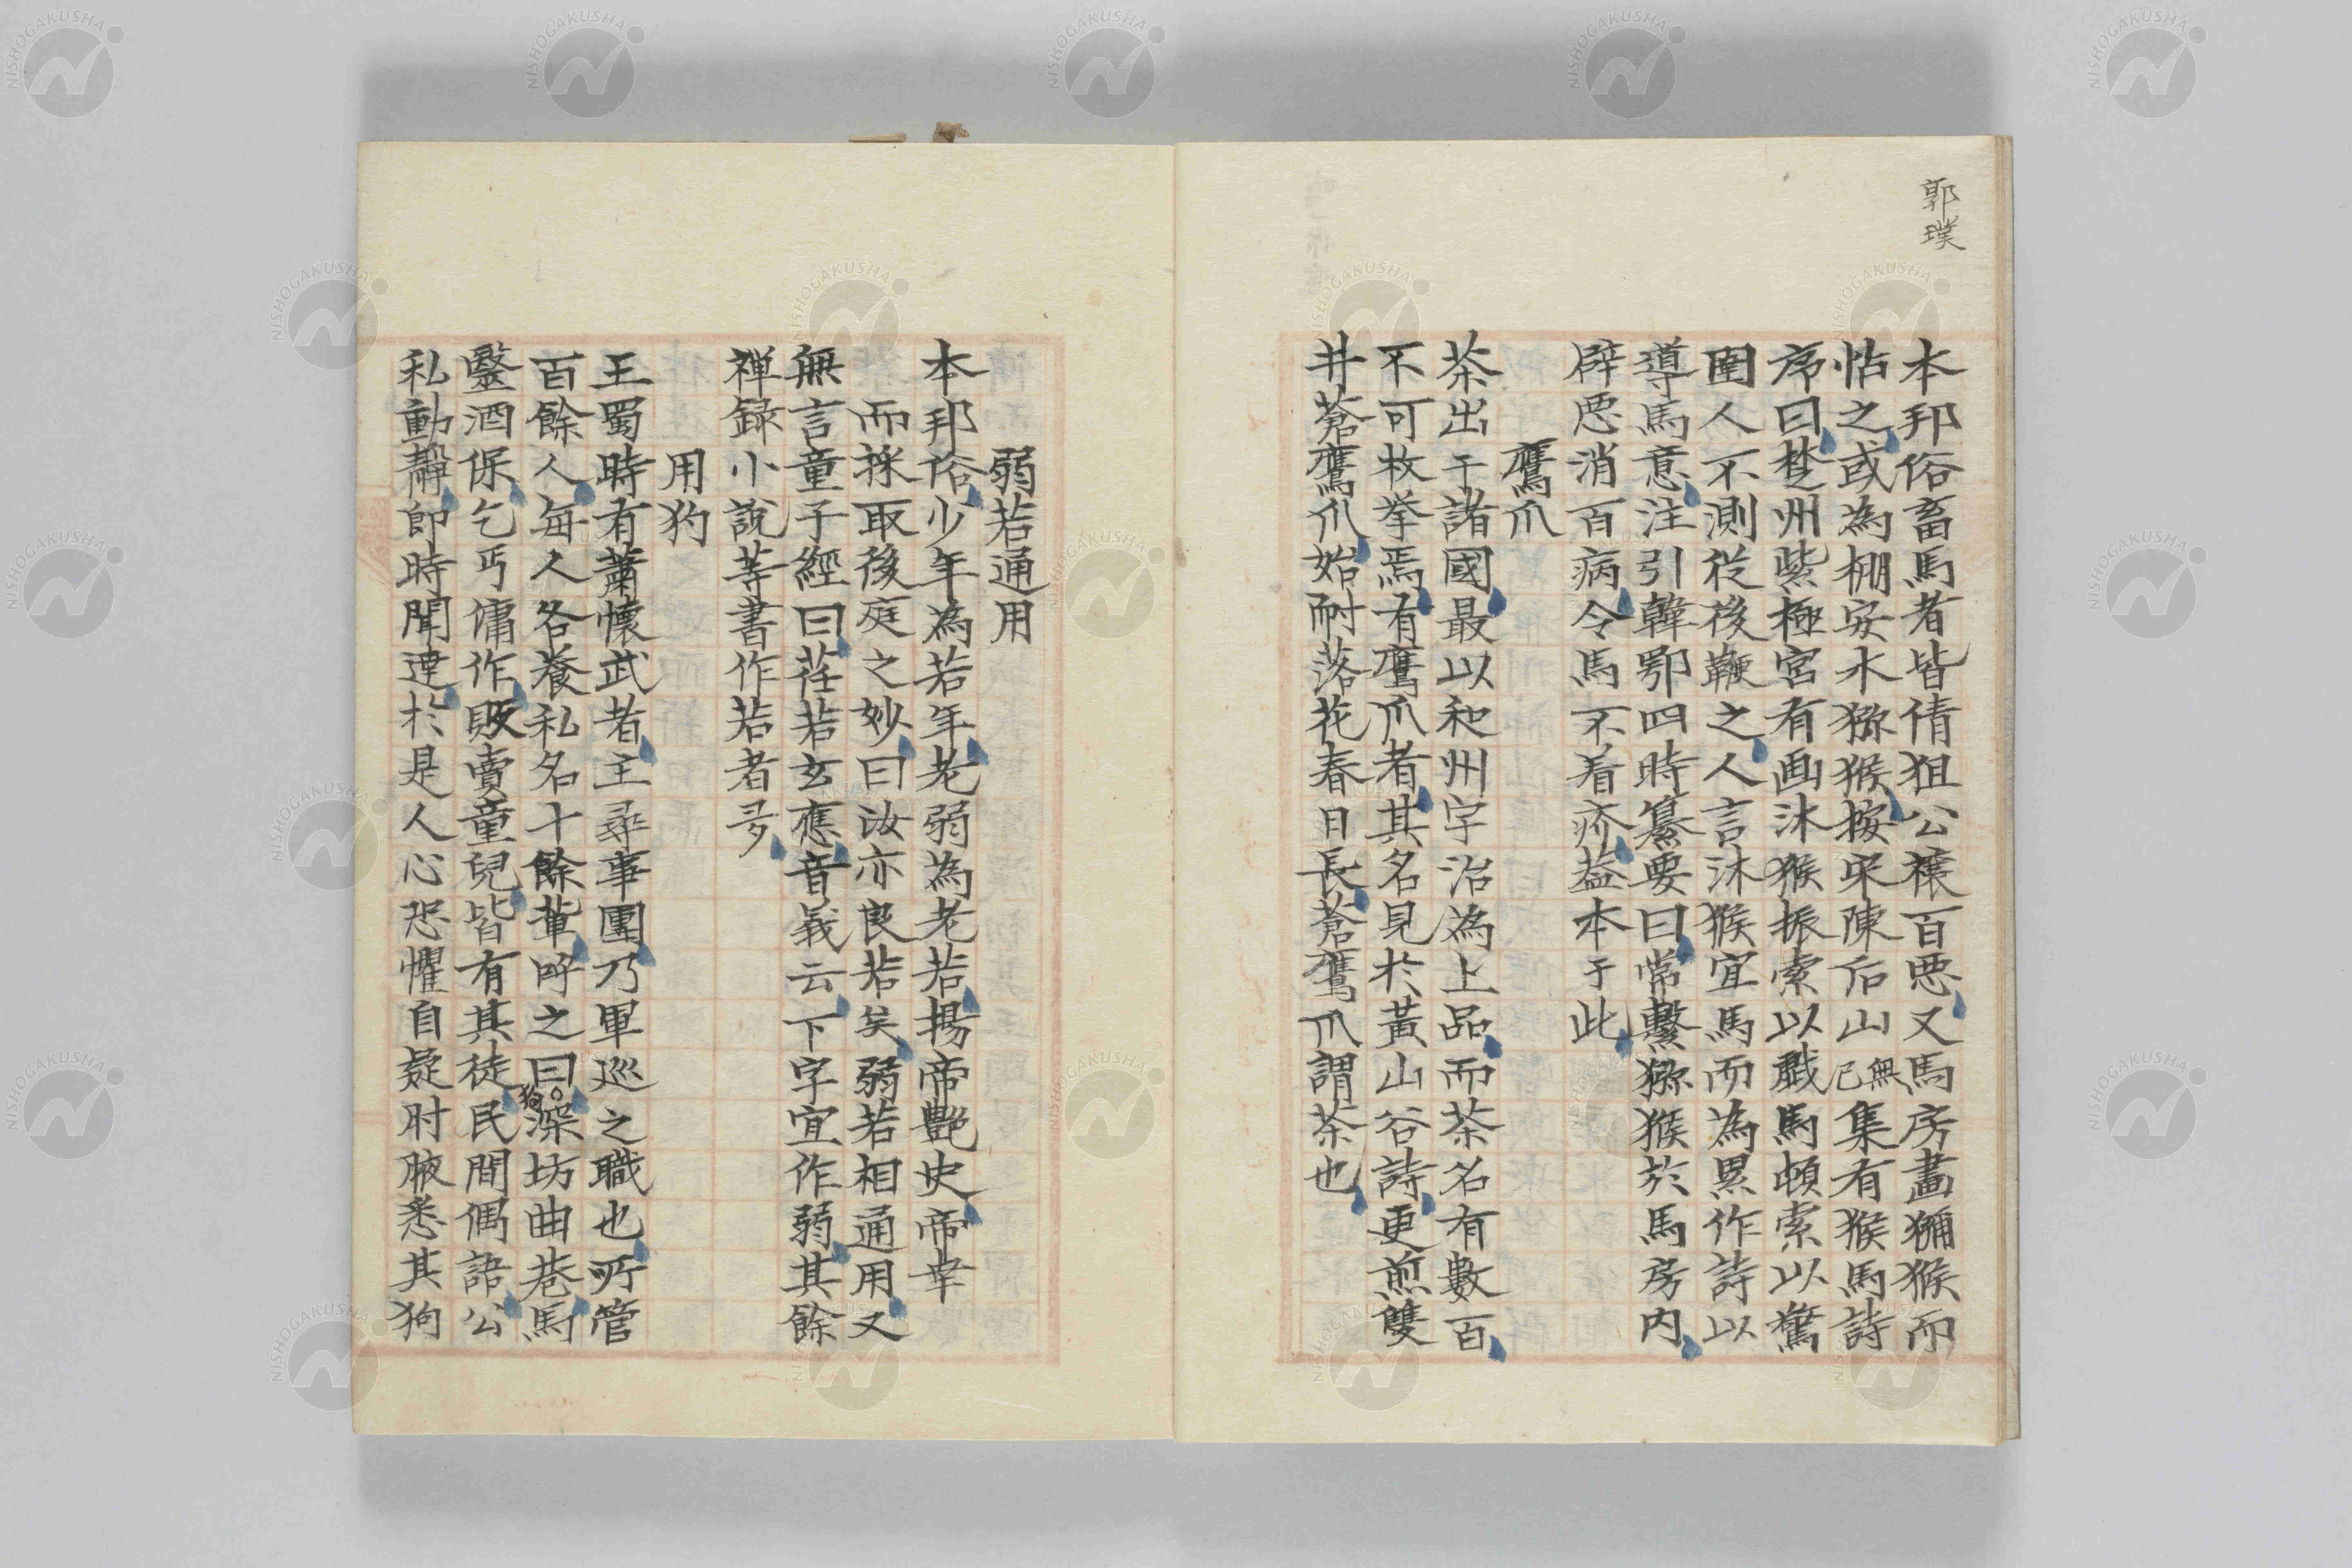 郭璞
本邦俗畜馬者皆倩狙公禳百悪又馬房畫獼猴而
怗之或為棚安木猕猴按宋陳后山無己集有猴馬詩
序曰楚州紫極宮有画沐猴振索以戲馬頓索以驚
圉人不測従後鞭之人言沐猴宜馬而為累作詩以
導馬意注引韓鄂四時纂要曰常繫猕猴於馬房内
辟悪消百病令馬不着疥蓋本于此
鷹爪
茶出于諸國最以和州宇治為上品而茶名有數百
不可枚挙焉有鷹爪者其名見於黃山谷詩更煎雙
井蒼鷹爪始耐落花春日長蒼鷹爪謂茶也
弱若通用
本邦俗少年為若年老弱為老若揚帝艶史帝幸
而採取後庭之妙曰汝亦良若矣弱若相通用又
無言童子經曰荏若玄應音義云下字宜作弱其餘
禅録小說等書作若者多
用狗
王蜀時有蕭懷武者主尋事團乃軍巡之職也所管
百餘人每人各養私名十餘輩呼之曰狗深坊曲巷馬
毉酒保乞丐傭作販賣童兒皆有其徒民間偶語公
私動靜即時聞達於是人心恐懼自疑肘腋悉其狗
NISHOGAKUSHA